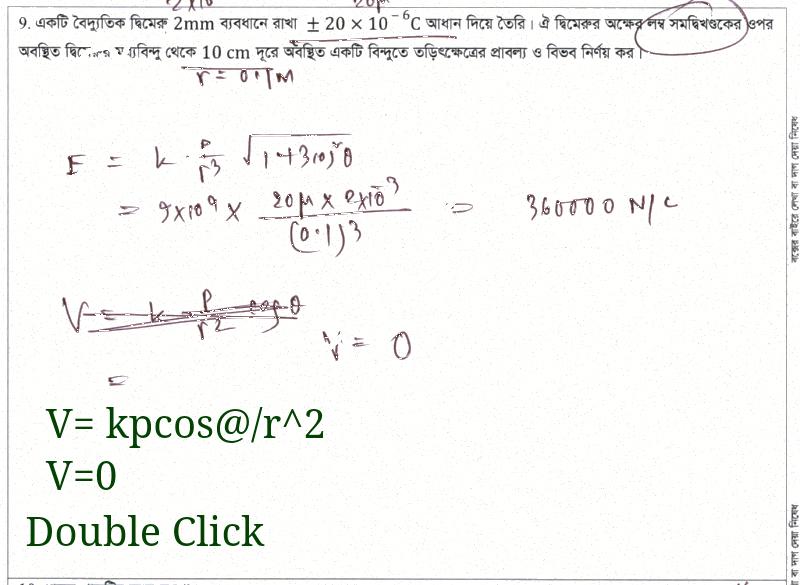 9. একটি বৈদ্যুতিক দ্বিমেরু 2mm ব্যবধানে রাখা ± 20 × 10⁻⁶C আধান দিয়ে তৈরি। ঐ দ্বিমেরুর অক্ষের লম্ব সমদ্বিখণ্ডকের ওপর
অবস্থিত মধ্যবিন্দু থেকে 10 cm দূরে অবস্থিত একটি বিন্দুতে তড়িৎক্ষেত্রের প্রাবল্য ও বিভব নির্ণয় কর।
r = 0.1 M
E = k · P/r³ √1+3cos²θ
= 9×10⁹ × 20μ × 2×10⁻³/(0.1)³ = 360000 N/C
V = k P/r² cosθ
V = 0
=
V= kpcos@/r^2
V=0
Double Click